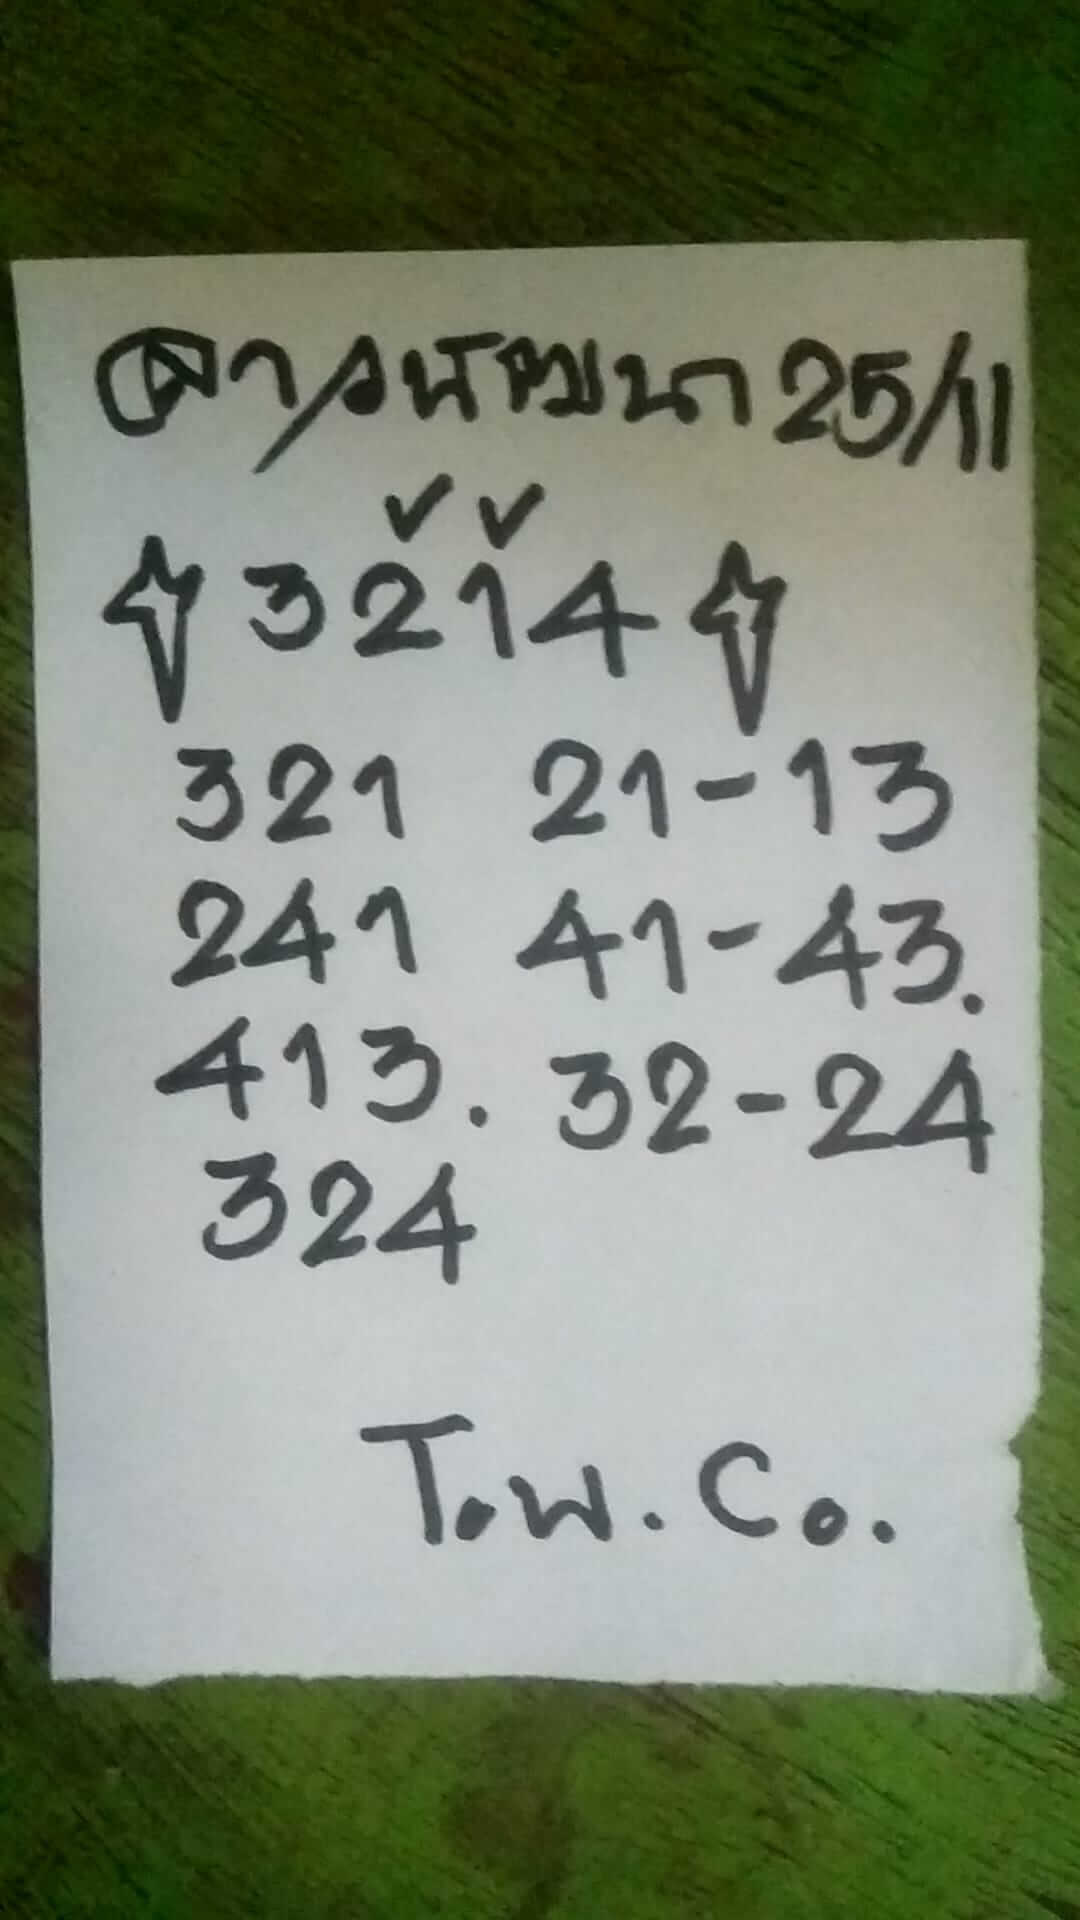 ลาวพัฒนา 25/11
3214
321 21-13
241 41-43.
413. 32-24
324
T.W. Co.